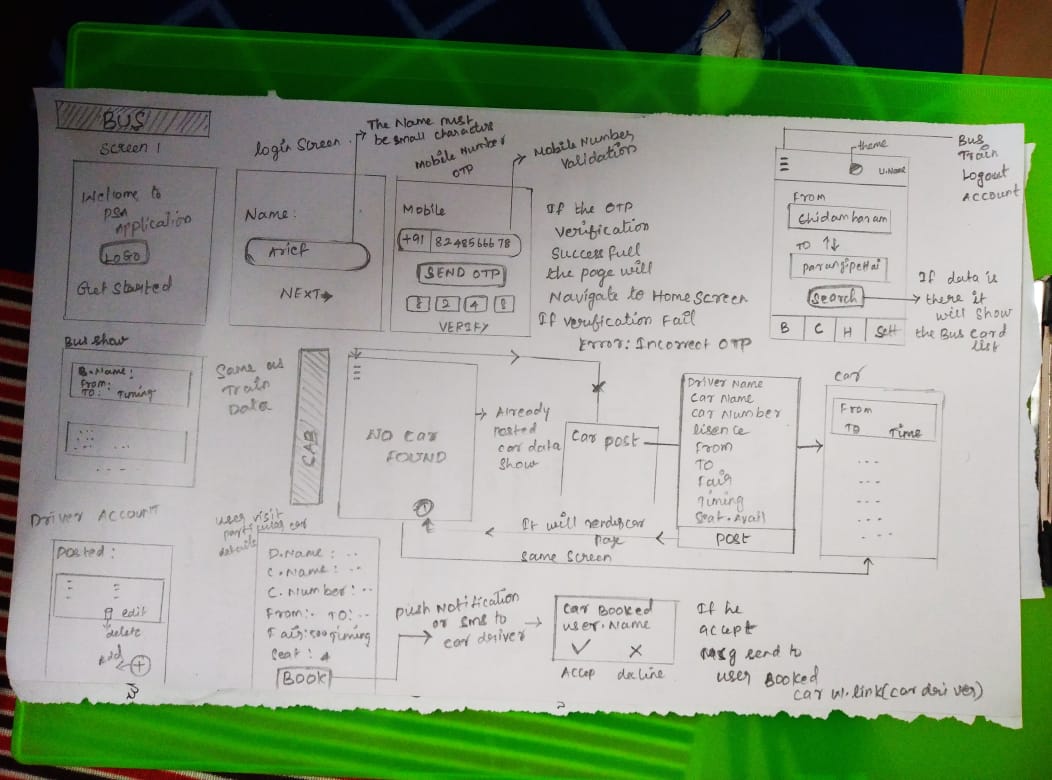 BUS
Screen 1
Welcome to
PSA
Application
LOGO
Get Started
login Screen
The Name must
be small characters
Name:
Arief
NEXT→
Mobile Number
OTP
Mobile Number
Validation
Mobile
+91 82485666 78
SEND OTP
8 2 4 8
VERIFY
If the OTP
Verification
Successfull
the page will
Navigate to Home Screen
If verification Fail
Error: Incorrect OTP
theme
U.Name
Bus
Train
Logout
Account
From
Chidambaram
TO ↑↓
parangipettai
Search
B C H Sett
If data is
there it
will show
the Bus card
list
Bus show
B.Name:
From:
TO: Timing
Same as
Train
Data
CAR
NO Car
FOUND
Already
posted
car data
show
Car post
Driver Name
Car Name
Car Number
lisence
From
TO
Fair
Timing
Seat.Avail
POST
car
From
TO Time
It will render car
page
Same Screen
Driver Account
Posted:
edit
delete
Add
User visit
particular car
details
D.Name: ..
C.Name: ..
C.Number: ..
From:- TO: ..
Fair:500 Timing
Seat: 4
BOOK
push Notification
or sms to
car driver
Car Booked
user.Name
✓ ×
Accep decline
If he
accept
Msg send to
user Booked
car w.link(car driver)